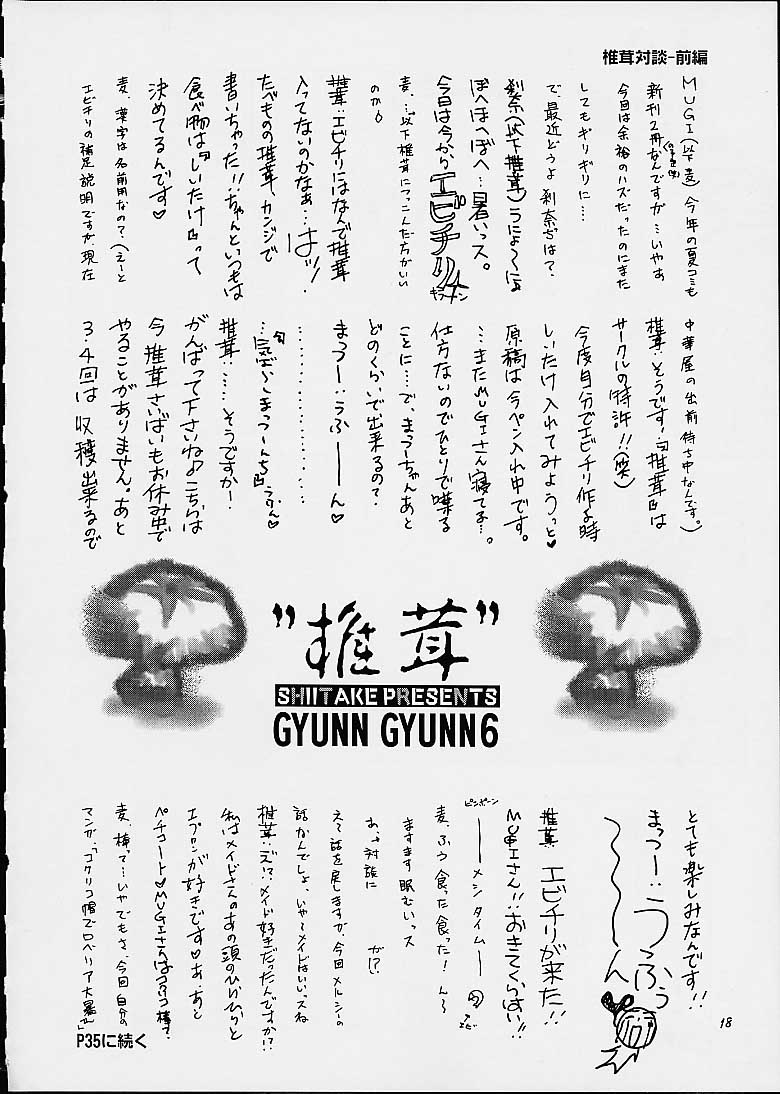 椎茸対談-前編
MUGI(以下麦)今年の夏コミも
新刊2冊なんですが…いやぁ
今回は余裕のハズだったのにまた
してもギリギリに…
で、最近どうよ刹奈ちは?
刹奈(以下椎茸)うにょ〜によ
ぽへほへぽへ…暑いっス。
今日は今からエビチリ
麦、…以下椎茸につっこんだ方がいい
のか?
椎茸:エビチリにはなんで椎茸
入ってないのかなぁ…はッ!
たべものの椎茸、カンジで
書いちゃった!!…ちゃんといつもは
食べ物は『しいたけ』って
決めてるんです♥
麦、漢字は名前用なの?(えーと
エビチリの補足説明ですが、現在
中華屋の出前待ち中なんです。)
椎茸:そうです!『椎茸』は
サークルの特許!!(笑)
今度自分でエビチリ作る時
しいたけ入れてみようっと♥
原稿は今ペン入れ中です。
…またMUGIさん寝てる…。
仕方ないのでひとりで喋る
ことに…で、まっつーちゃんあと
どのくらいで出来るの?
まっつー:うふーーん♥
……………
椎茸:……そうですかー!
がんばって下さいね♪こちらは
今椎茸さいばいもお休み中で
やることがありません。あと
3、4回は収穫出来るので
"椎茸"
SHIITAKE PRESENTS
GYUNN GYUNN6
とても楽しみなんです!!
まっつー:うっふぅ
〜〜〜〜ん
椎茸 エビチリが来た!!
MUGIさん!!おきてくらはい!!
ピンポーン
——メシタイム——
麦、ふう食った食った!ん〜
ますます眠むいっス
あ、対談に が!?
えー話を戻しますが、今回メルシーの
話かんでしょ、いや〜メイドはいいっスね
椎茸:え!?メイド好きだったんですか!?
私はメイドさんのあの頭のひらひらと
エプロンが好きです♥あ、あと
ペチコート♥MUGIさんはつっつく棒?
麦、棒って…いやでもさ、今回自分の
マンガ、「コクリコ帽でロベリア大暴れ」
P35に続く
18